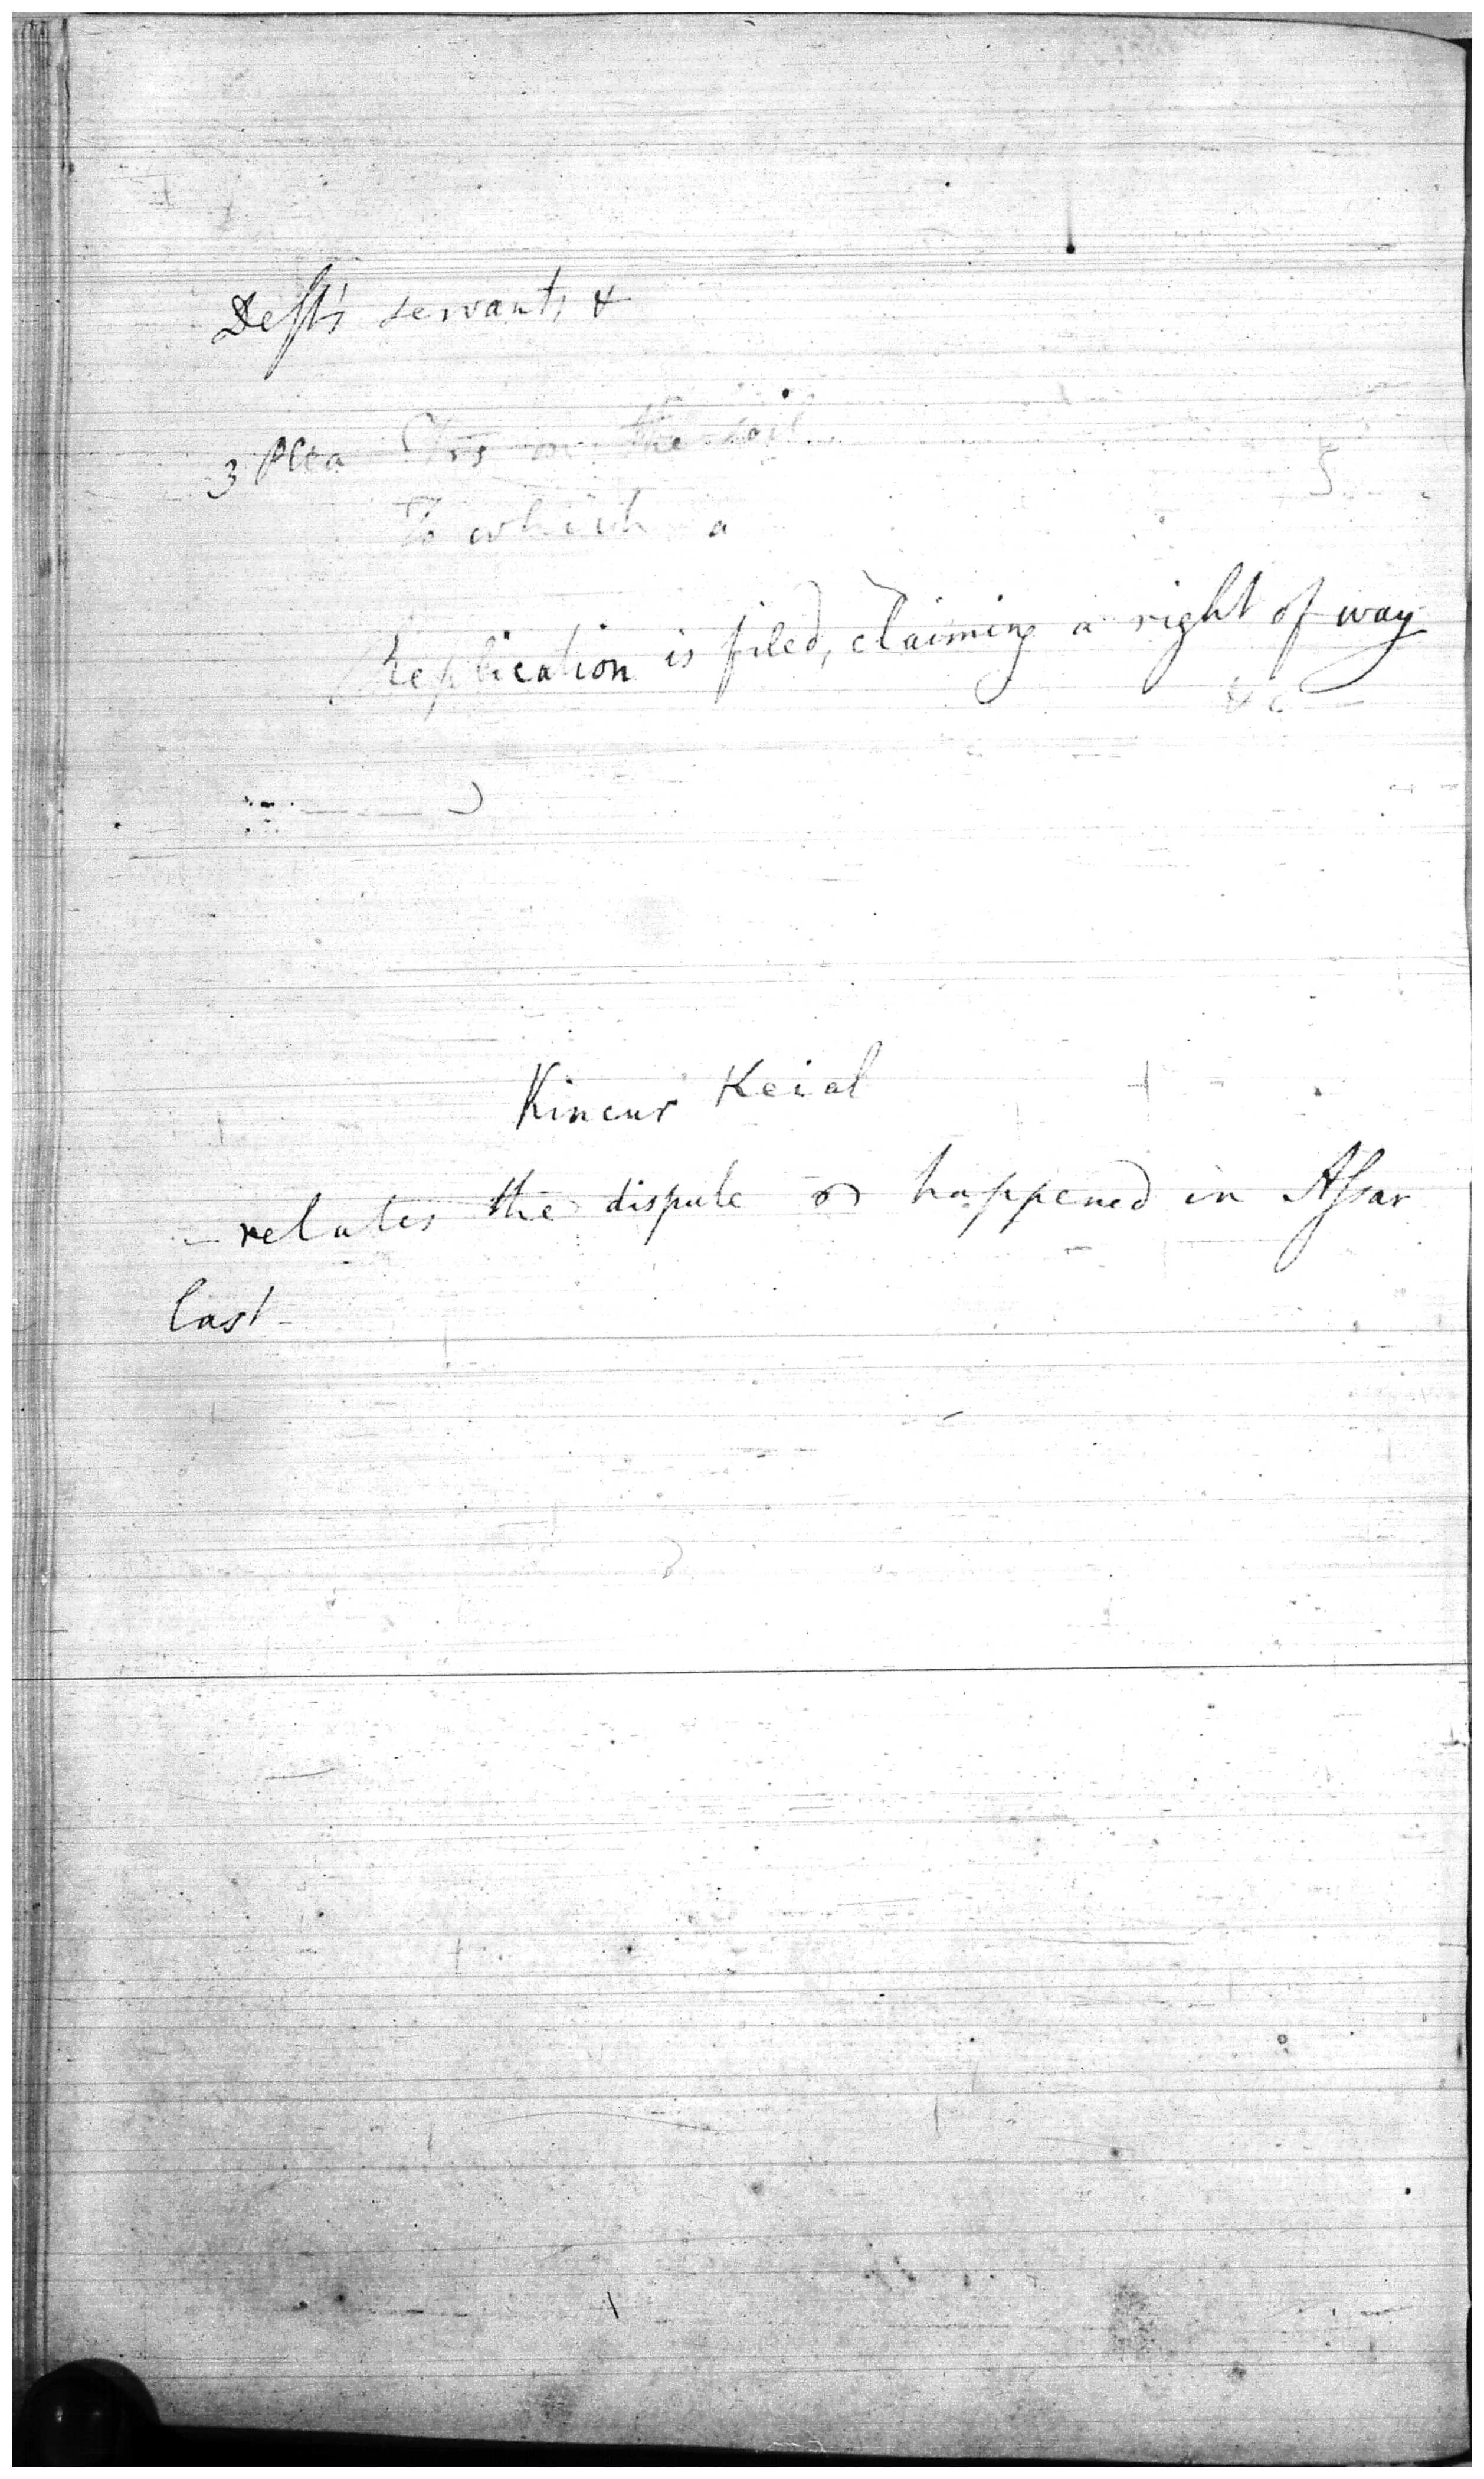 Deft's servants &
3 Plea Trs on the soil
To which a
Replication is filed, claiming a right of way
&c
Kincur Keial
relates the dispute happened in Assar
last -